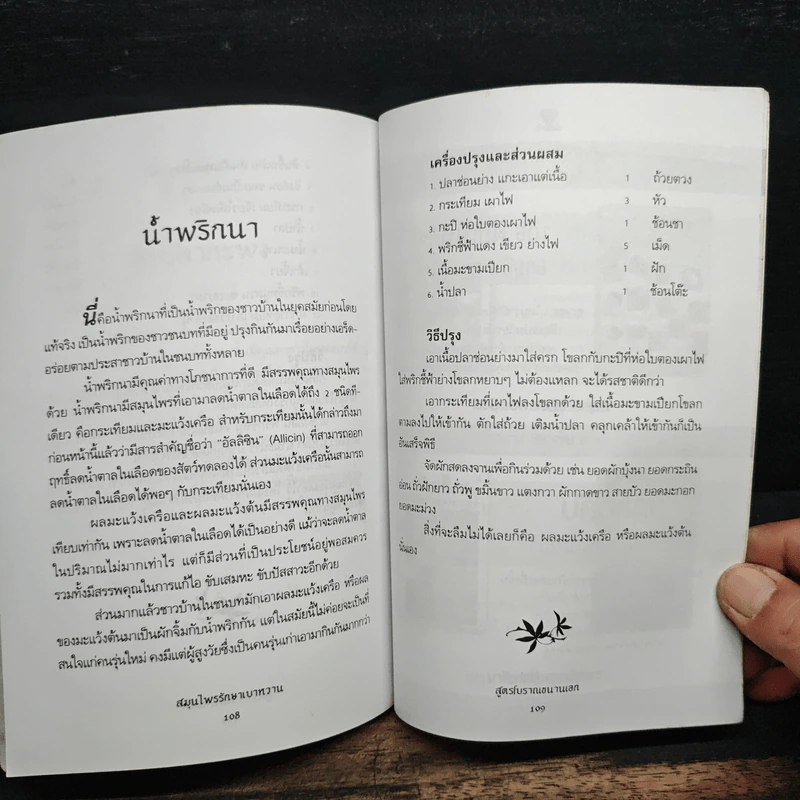 น้ำพริกนา
นี่คือน้ำพริกนาที่เป็นน้ำพริกของชาวบ้านในยุคสมัยก่อนโดย
แท้จริง เป็นน้ำพริกของชาวชนบทที่มีอยู่ ปรุงกินกันมาเรื่อยอย่างเอร็ด-
อร่อยตามประสาชาวบ้านในชนบททั้งหลาย
น้ำพริกนามีคุณค่าทางโภชนาการที่ดี มีสรรพคุณทางสมุนไพร
ด้วย น้ำพริกนามีสมุนไพรที่เอามาลดน้ำตาลในเลือดได้ถึง 2 ชนิดที-
เดียว คือกระเทียมและมะแว้งเครือ สำหรับกระเทียมนั้นได้กล่าวถึงมา
ก่อนหน้านี้แล้วว่ามีสารสำคัญชื่อว่า "อัลลิซิน" (Allicin) ที่สามารถออก
ฤทธิ์ลดน้ำตาลในเลือดของสัตว์ทดลองได้ ส่วนมะแว้งเครือนั้นสามารถ
ลดน้ำตาลในเลือดได้พอๆ กับกระเทียมนั่นเอง
ผลมะแว้งเครือและผลมะแว้งต้นมีสรรพคุณทางสมุนไพร
เทียบเท่ากัน เพราะลดน้ำตาลในเลือดได้เป็นอย่างดี แม้ว่าจะลดน้ำตาล
ในปริมาณไม่มากเท่าไร แต่ก็มีส่วนที่เป็นประโยชน์อยู่พอสมควร
รวมทั้งมีสรรพคุณในการแก้ไอ ขับเสมหะ ขับปัสสาวะอีกด้วย
ส่วนมากแล้วชาวบ้านในชนบทมักเอาผลมะแว้งเครือ หรือผล
ของมะแว้งต้นมาเป็นผักจิ้มกับน้ำพริกกัน แต่ในสมัยนี้ไม่ค่อยจะเป็นที่
สนใจแก่คนรุ่นใหม่ คงมีแต่ผู้สูงวัยซึ่งเป็นคนรุ่นเก่าเอามากินกันมากกว่า
สมุนไพรรักษาเบาหวาน
108
เครื่องปรุงและส่วนผสม
1. ปลาช่อนย่าง แกะเอาแต่เนื้อ 1 ถ้วยตวง
2. กระเทียม เผาไฟ 3 หัว
3. กะปิ ห่อใบตองเผาไฟ 1 ช้อนชา
4. พริกชี้ฟ้าแดง เขียว ย่างไฟ 5 เม็ด
5. เนื้อมะขามเปียก 1 ฝัก
6. น้ำปลา 1 ช้อนโต๊ะ
วิธีปรุง
เอาเนื้อปลาช่อนย่างมาใส่ครก โขลกกับกะปิที่ห่อใบตองเผาไฟ
ใส่พริกชี้ฟ้าย่างโขลกหยาบๆ ไม่ต้องแหลก จะได้รสชาติดีกว่า
เอากระเทียมที่เผาไฟลงโขลกด้วย ใส่เนื้อมะขามเปียกโขลก
ตามลงไปให้เข้ากัน ตักใส่ถ้วย เติมน้ำปลา คลุกเคล้าให้เข้ากันก็เป็น
อันเสร็จพิธี
จัดผักสดลงจานเพื่อกินร่วมด้วย เช่น ยอดผักบุ้งนา ยอดกระถิน
อ่อน ถั่วฝักยาว ถั่วพู ขมิ้นขาว แตงกวา ผักกาดขาว สายบัว ยอดมะกอก
ยอดมะม่วง
สิ่งที่จะลืมไม่ได้เลยก็คือ ผลมะแว้งเครือ หรือผลมะแว้งต้น
นั่นเอง
สูตรโบราณขนานเอก
109